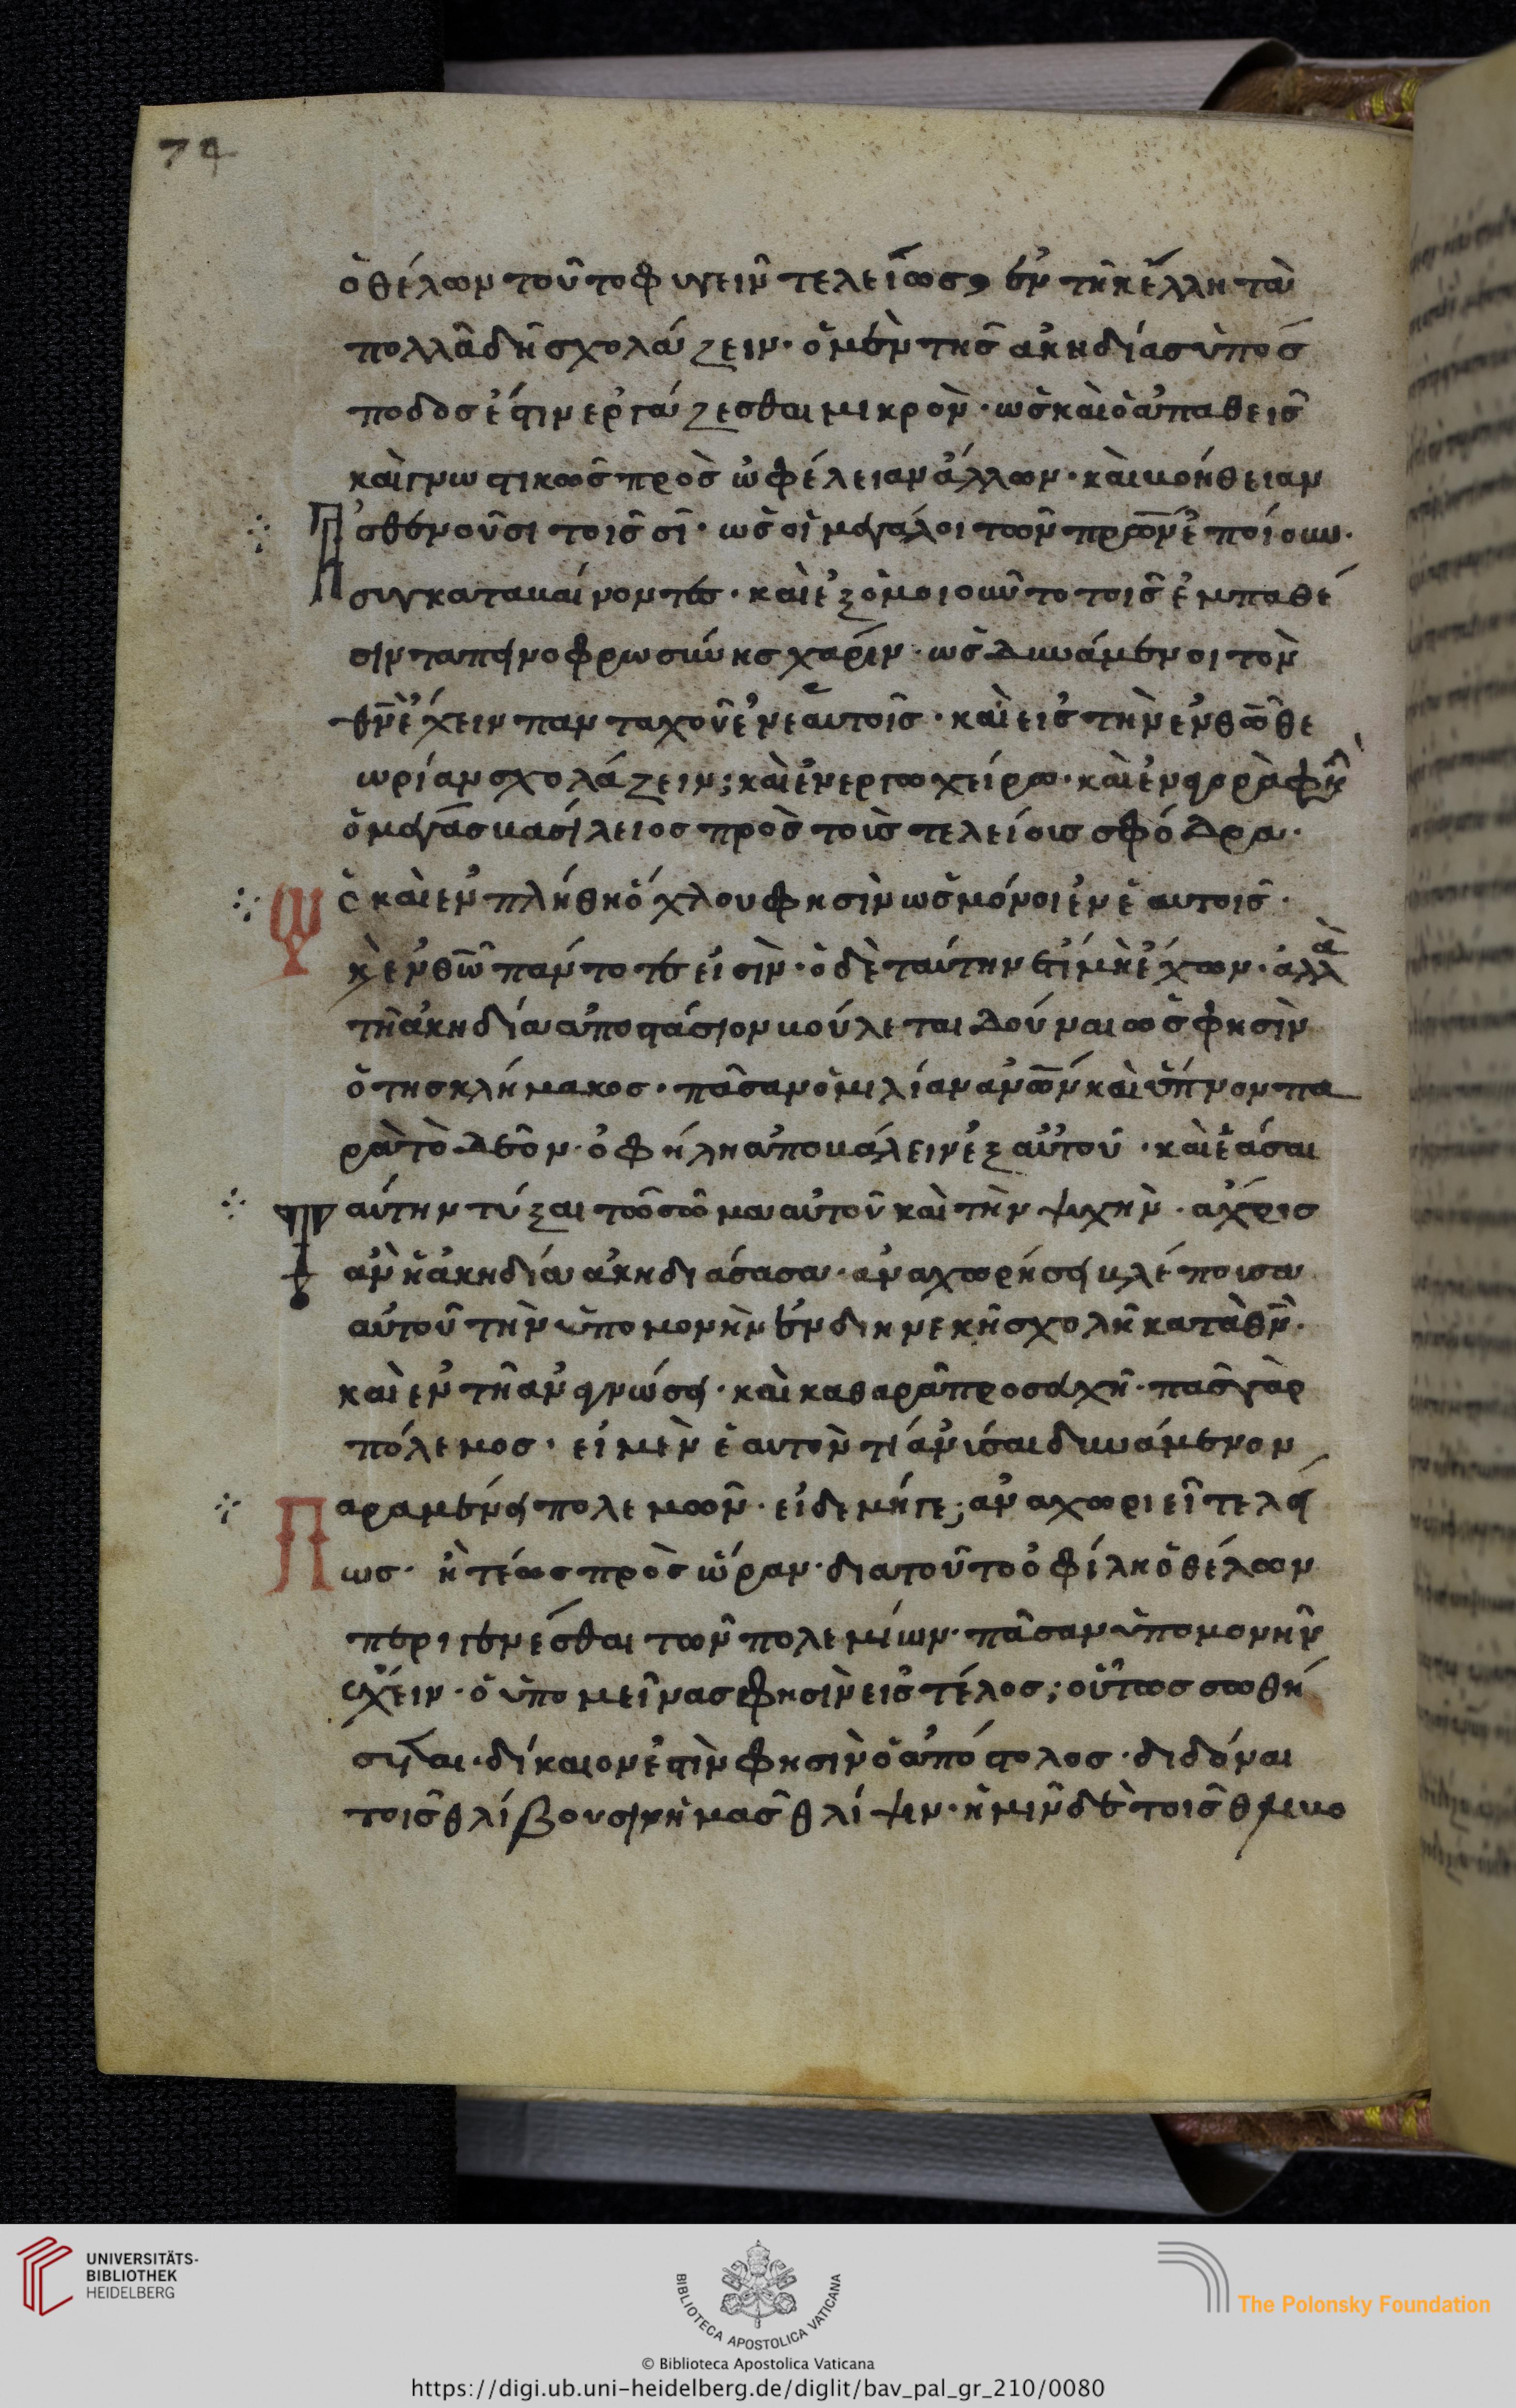 74
ὁ θέλων τοῦτο φυγεῖν τελείως, ἐν τῇ κέλλῃ τὰ
πολλὰ δὴ σχολάζειν· ὁ μὲν τῆς ἀκηδίας ὑπόσ
ποδος ἐστιν ἐργάζεσθαι μικρὸν· ὡς καὶ ὁ ἀπαθεὶς
καὶ γνωστικῶς πρὸς ὠφέλειαν ἄλλων· καὶ βοήθειαν
Ἀσθενοῦσι τοῖς σῖ· ὡς οἱ μεγάλοι τῶν πρων ἐποίουν·
συγκαταβαίνοντες· καὶ ἐξομοιοῦντο τοῖς ἐμπαθέ
σιν ταπεινοφρωσύνης χάριν· ὡς δυνάμενοι τὸν
θν ἔχειν πανταχοῦ ἐν ἑαυτοῖς· καὶ εἰς τὴν ἐν θῶ θε
ωρίαν σχολάζειν; καὶ ἐν ἐργω χείρω· καὶ ἐν στορράφῃ
ὁ μέγας βασίλειος πρὸς τοῖς τελείοις σφόδρα·
Ὡς καὶ ἐν πλήθῃ ὄχλου φησὶν ὡς μόνοι ἐν ἑαυτοῖς·
κὲ ἐν θῶ πάντοτε εἰσὶν· ὁ δὲ ταύτην ἔτι μὴ ἔχων· ἀλλὰ
τῇ ἀκηδία ἀποστάσιον βούλεται δούναι ὡς φησὶν
ὁ τῆς κλήμακος· πᾶσαν ὁμιλίαν ανων καὶ ὕπνον πα
ρὰ τὸ δέον· ὀφήλη ἀποβάλειν ἐξ αὐτοῦ· καὶ ἐάσαι
ταύτην τύξαι τῶ σῶμα αὐτοῦ καὶ τὴν ψυχὴν· ἄχρις
ἀν ἡ ἀκηδία ἀκηδιάσασα· ἀναχωρήσει βλέπουσα
αὐτοῦ τὴν ὑπομονὴν ἐν διηνεκῆ σχολῆ κατὰ θν·
καὶ ἐν τῆ ἀναγνώσει· καὶ καθαρᾶ προσευχῆ· πᾶς γὰρ
πόλεμος· εἰ μὲν ἑαυτὸν τὶ ἀνίσαι δυνάμενον
Παραμένει πολεμῶν· εἰ δε μήγε; ἀναχωριεῖ τελεί
ως· ἢ τέως πρὸς ὥραν· διατοῦτο ὀφίλη ὁ θέλων
περιγενέσθαι τῶν πολεμίων· πᾶσαν ὑπομονῆν
ἔχειν· ὁ ὑπομείνας φησὶν εἰς τέλος; οὕτως σωθή
σεται· δίκαιον ἐστὶν φησὶν ὁ ἀπόστολος· διδόναι
τοῖς θλίβουσιν ἡμᾶς θλίψιν· ἡμῖν δὲ τοῖς θλιβο
UNIVERSITÄTS-
BIBLIOTHEK
HEIDELBERG
BIBLIOTECA APOSTOLICA VATICANA
The Polonsky Foundation
© Biblioteca Apostolica Vaticana
https://digi.ub.uni-heidelberg.de/diglit/bav_pal_gr_210/0080